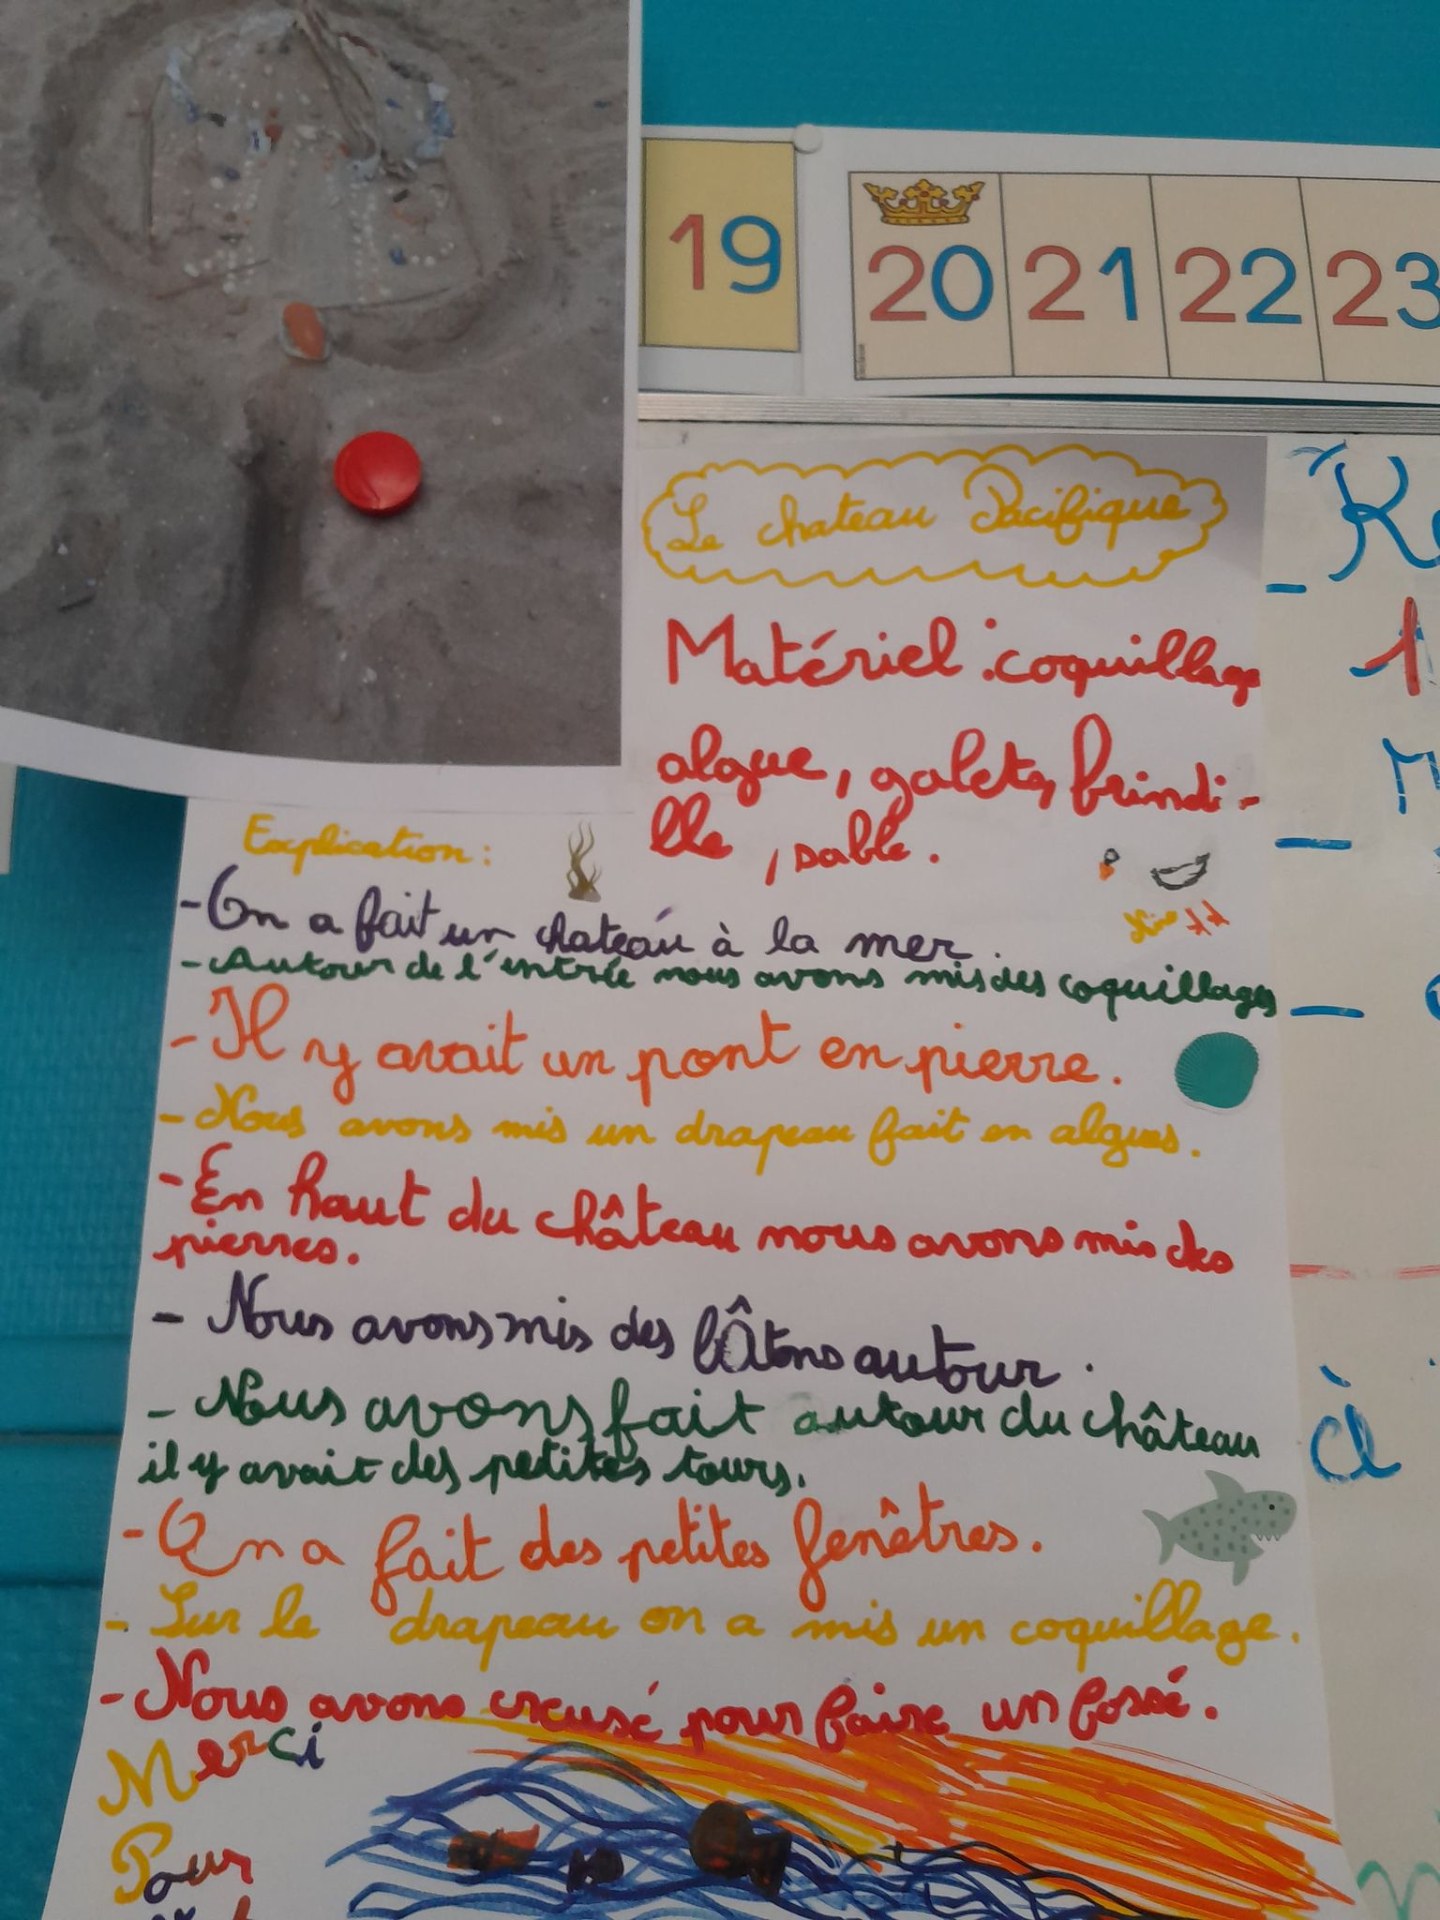 19
20 21 22 23
Le chateau Pacifique
Matériel : coquillage
algue, galets, brindi-
lle, sable.
Explication :
- On a fait un chateau à la mer.
- Autour de l'entrée nous avons mis des coquillages
- Il y avait un pont en pierre.
- Nous avons mis un drapeau fait en algues.
- En haut du château nous avons mis des
pierres.
- Nous avons mis des bâtons autour.
- Nous avons fait autour du château
il y avait des petites tours.
- On a fait des petites fenêtres.
- Sur le drapeau on a mis un coquillage.
- Nous avons creusé pour faire un fossé.
Merci
Pour
à